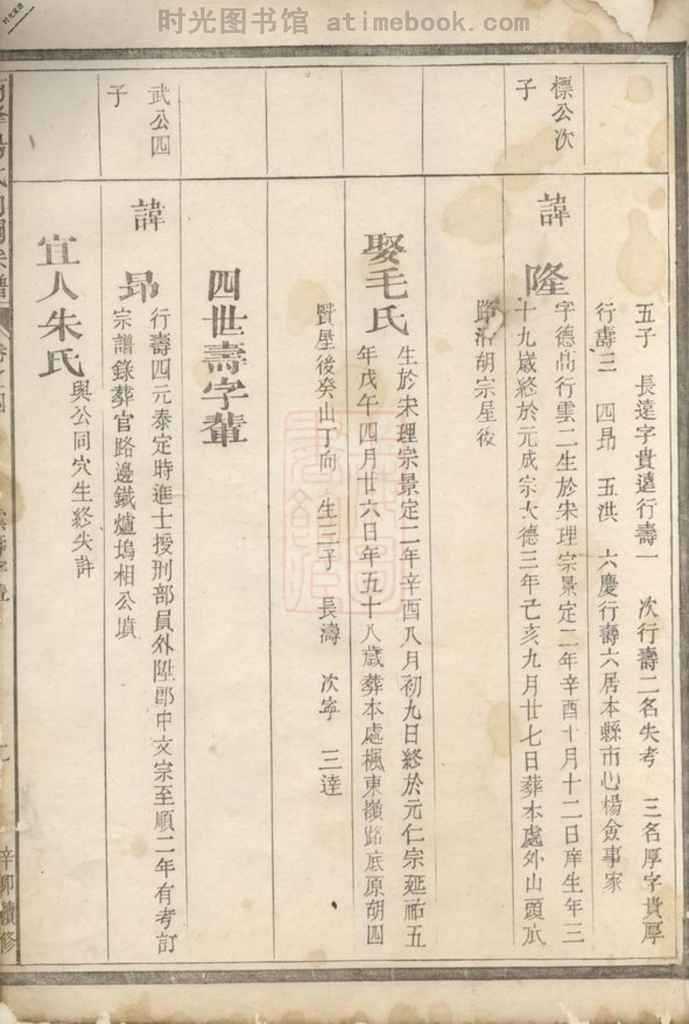 时光图书馆 atimebook.com
五子 長達字貴達行壽一 次行壽二名失考 三名厚字貴厚
行壽三 四昂 五洪 六慶行壽六居本縣市心楊僉事家
標公次
子
諱 隆
字德高行雲二生於宋理宗景定二年辛酉十月十二日庠生年三
十九歲終於元成宗大德三年己亥九月廿七日葬本處外山頭瓜
路沿胡宗屋後
娶毛氏
生於宋理宗景定二年辛酉八月初九日終於元仁宗延祐五
年戊午四月廿六日年五十八歲葬本處楓東嶺路底原胡四
賢屋後癸山丁向 生三子 長濤 次寧 三達
四世壽字輩
武公四
子
諱 昂
行壽四元泰定時進士授刑部員外陞郎中文宗至順二年有考訂
宗譜錄葬官路邊鐵爐塢相公墳
宜人朱氏
與公同穴生終失詳
辛卯續修